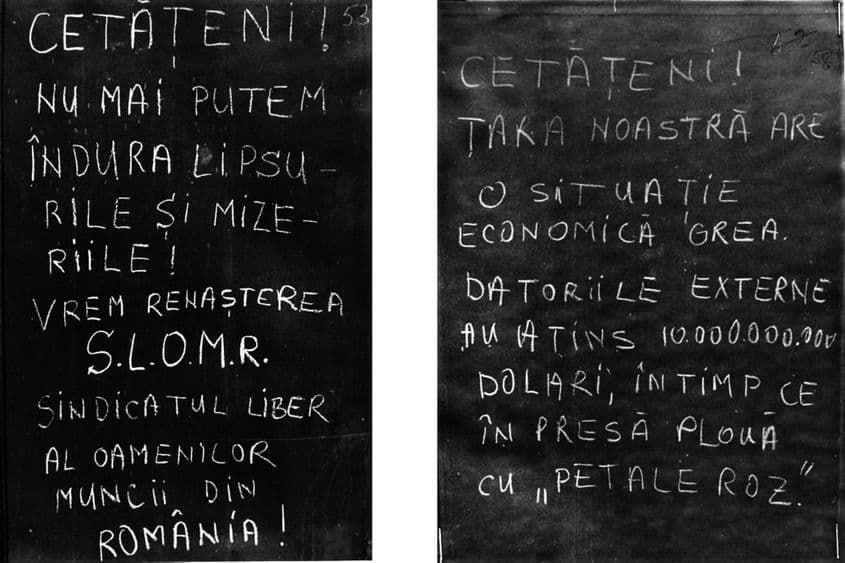 CETĂȚENI! 53
NU MAI PUTEM
ÎNDURA LIPSU-
RILE ȘI MIZE-
RIILE!
VREM RENAȘTEREA
S.L.O.M.R.
SINDICATUL LIBER
AL OAMENILOR
MUNCII DIN
ROMÂNIA!
CETĂȚENI!
ȚARA NOASTRĂ ARE
O SITUAȚIE
ECONOMICĂ GREA.
DATORIILE EXTERNE
AU ATINS 10.000.000.000
DOLARI, ÎN TIMP CE
ÎN PRESĂ PLOUĂ
CU „PETALE ROZ."